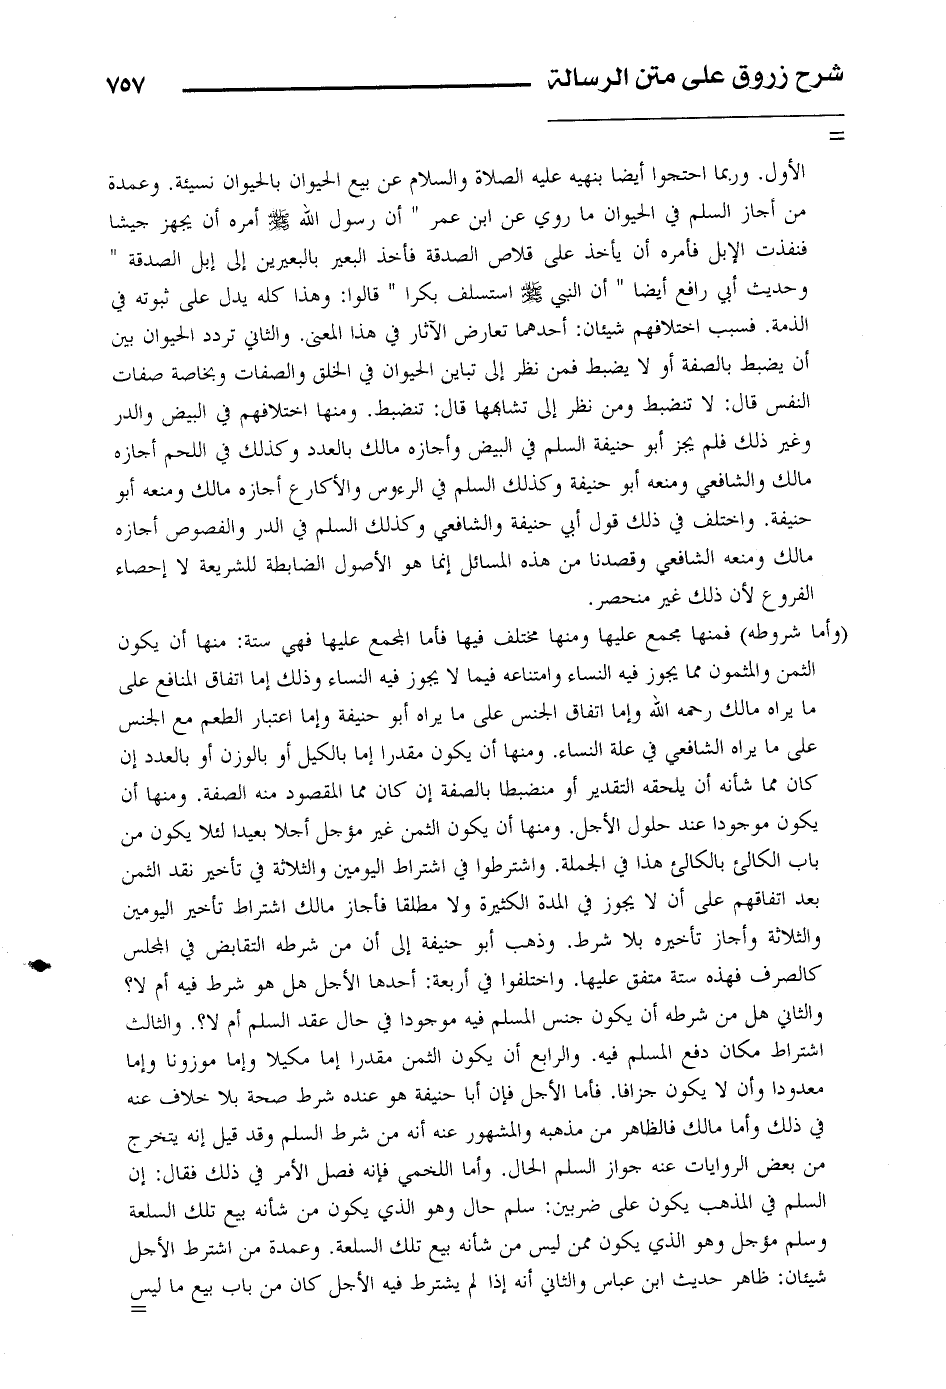 شرح زروق على متن الرسالة ٧٥٧
=
الأول. وربما احتجوا أيضا بنهيه عليه الصلاة والسلام عن بيع الحيوان بالحيوان نسيئة. وعمدة
من أجاز السلم في الحيوان ما روي عن ابن عمر " أن رسول الله ﷺ أمره أن يجهز جيشا
فنفذت الإبل فأمره أن يأخذ على قلاص الصدقة فأخذ البعير بالبعيرين إلى إبل الصدقة "
وحديث أبي رافع أيضا " أن النبي ﷺ استسلف بكرا " قالوا: وهذا كله يدل على ثبوته في
الذمة. فسبب اختلافهم شيئان: أحدهما تعارض الآثار في هذا المعنى. والثاني تردد الحيوان بين
أن يضبط بالصفة أو لا يضبط فمن نظر إلى تباين الحيوان في الخلق والصفات وبخاصة صفات
النفس قال: لا تنضبط ومن نظر إلى تشابهها قال: تنضبط. ومنها اختلافهم في البيض والدر
وغير ذلك فلم يجز أبو حنيفة السلم في البيض وأجازه مالك بالعدد وكذلك في اللحم أجازه
مالك والشافعي ومنعه أبو حنيفة وكذلك السلم في الرءوس والأكارع أجازه مالك ومنعه أبو
حنيفة. واختلف في ذلك قول أبي حنيفة والشافعي وكذلك السلم في الدر والفصوص أجازه
مالك ومنعه الشافعي وقصدنا من هذه المسائل إنما هو الأصول الضابطة للشريعة لا إحصاء
الفروع لأن ذلك غير منحصر.
(وأما شروطه) فمنها مجمع عليها ومنها مختلف فيها فأما المجمع عليها فهي ستة: منها أن يكون
الثمن والمثمون مما يجوز فيه النساء وامتناعه فيما لا يجوز فيه النساء وذلك إما اتفاق المنافع على
ما يراه مالك رحمه الله وإما اتفاق الجنس على ما يراه أبو حنيفة وإما اعتبار الطعم مع الجنس
على ما يراه الشافعي في علة النساء. ومنها أن يكون مقدرا إما بالكيل أو بالوزن أو بالعدد إن
كان مما شأنه أن يلحقه التقدير أو منضبطا بالصفة إن كان مما المقصود منه الصفة. ومنها أن
يكون موجودا عند حلول الأجل. ومنها أن يكون الثمن غير مؤجل أجلا بعيدا لئلا يكون من
باب الكالئ بالكالئ هذا في الجملة. واشترطوا في اشتراط اليومين والثلاثة في تأخير نقد الثمن
بعد اتفاقهم على أن لا يجوز في المدة الكثيرة ولا مطلقا فأجاز مالك اشتراط تأخير اليومين
والثلاثة وأجاز تأخيره بلا شرط. وذهب أبو حنيفة إلى أن من شرطه التقابض في المجلس
كالصرف فهذه ستة متفق عليها. واختلفوا في أربعة: أحدها الأجل هل هو شرط فيه أم لا؟
والثاني هل من شرطه أن يكون جنس المسلم فيه موجودا في حال عقد السلم أم لا؟. والثالث
اشتراط مكان دفع المسلم فيه. والرابع أن يكون الثمن مقدرا إما مكيلا وإما موزونا وإما
معدودا وأن لا يكون جزافا. فأما الأجل فإن أبا حنيفة هو عنده شرط صحة بلا خلاف عنه
في ذلك وأما مالك فالظاهر من مذهبه والمشهور عنه أنه من شرط السلم وقد قيل إنه يتخرج
من بعض الروايات عنه جواز السلم الحال. وأما اللخمي فإنه فصل الأمر في ذلك فقال: إن
السلم في المذهب يكون على ضربين: سلم حال وهو الذي يكون من شأنه بيع تلك السلعة
وسلم مؤجل وهو الذي يكون ممن ليس من شأنه بيع تلك السلعة. وعمدة من اشترط الأجل
شيئان: ظاهر حديث ابن عباس والثاني أنه إذا لم يشترط فيه الأجل كان من باب بيع ما ليس
=